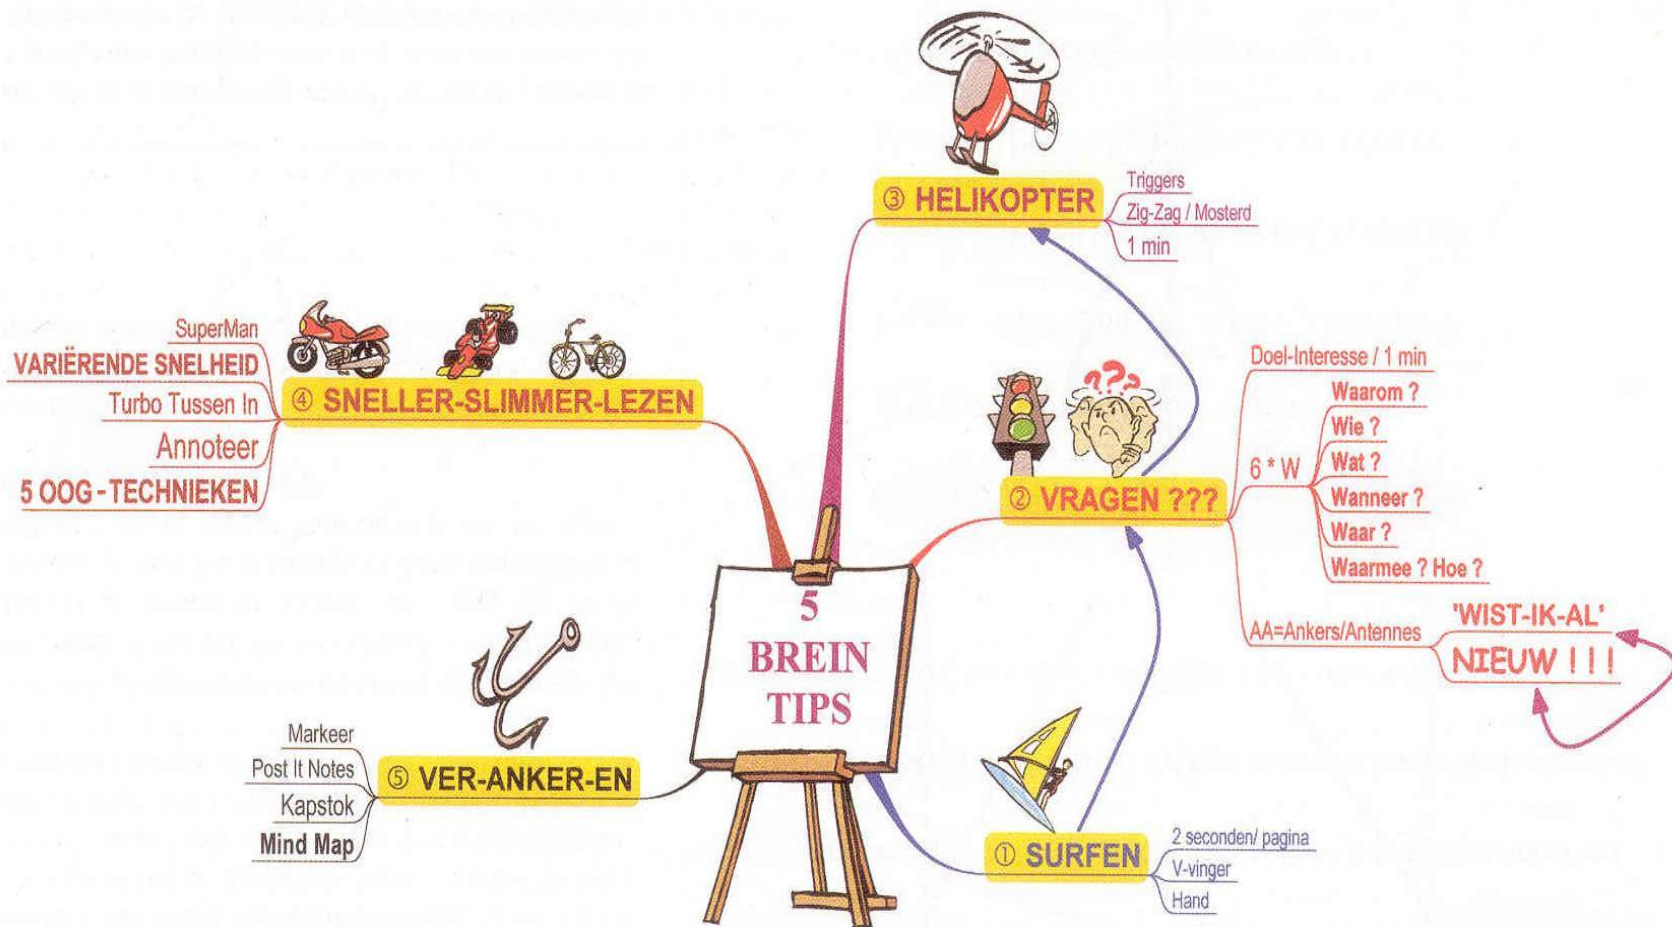 5
BREIN
TIPS
① SURFEN
2 seconden/ pagina
V-vinger
Hand
② VRAGEN ???
Doel-Interesse / 1 min
6 * W
Waarom ?
Wie ?
Wat ?
Wanneer ?
Waar ?
Waarmee ? Hoe ?
AA=Ankers/Antennes
'WIST-IK-AL'
NIEUW ! ! !
③ HELIKOPTER
Triggers
Zig-Zag / Mosterd
1 min
④ SNELLER-SLIMMER-LEZEN
SuperMan
VARIËRENDE SNELHEID
Turbo Tussen In
Annoteer
5 OOG - TECHNIEKEN
⑤ VER-ANKER-EN
Markeer
Post It Notes
Kapstok
Mind Map